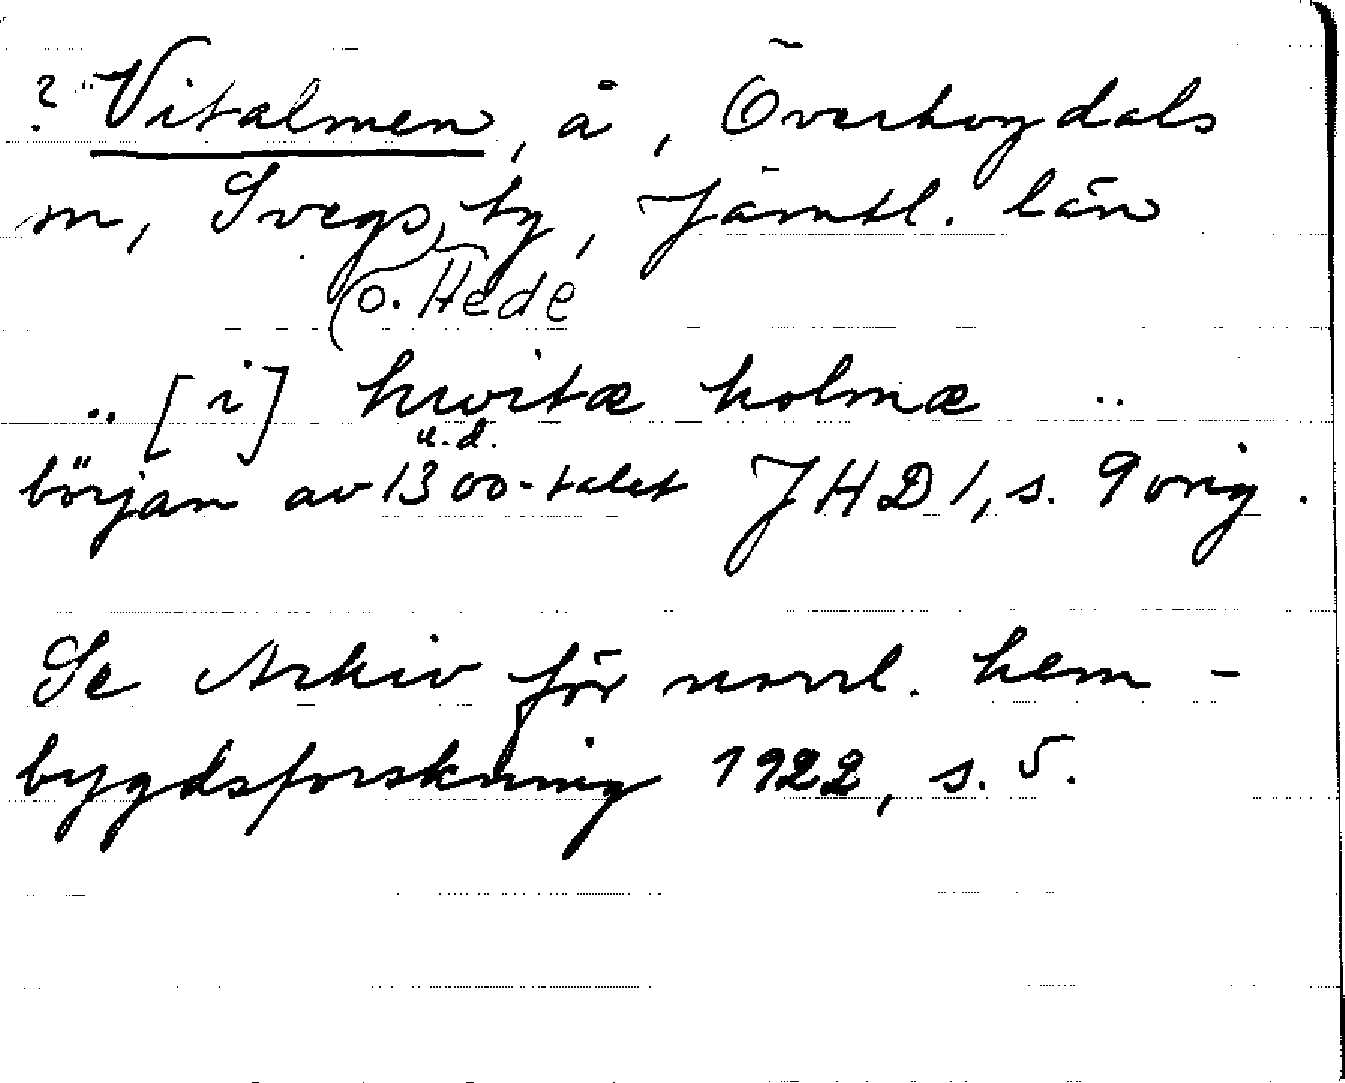 ? "Vitalmen, å, Överhogdals
m, Svegs, tg, Jämtl. län
(o. Hede
.. [i] hwitæ holmæ ..
u.d.
början av 1300-talet JHD 1, s. 9 orig.
Se Arkiv för norrl. hem-
bygdsforskning 1922, s. 5.